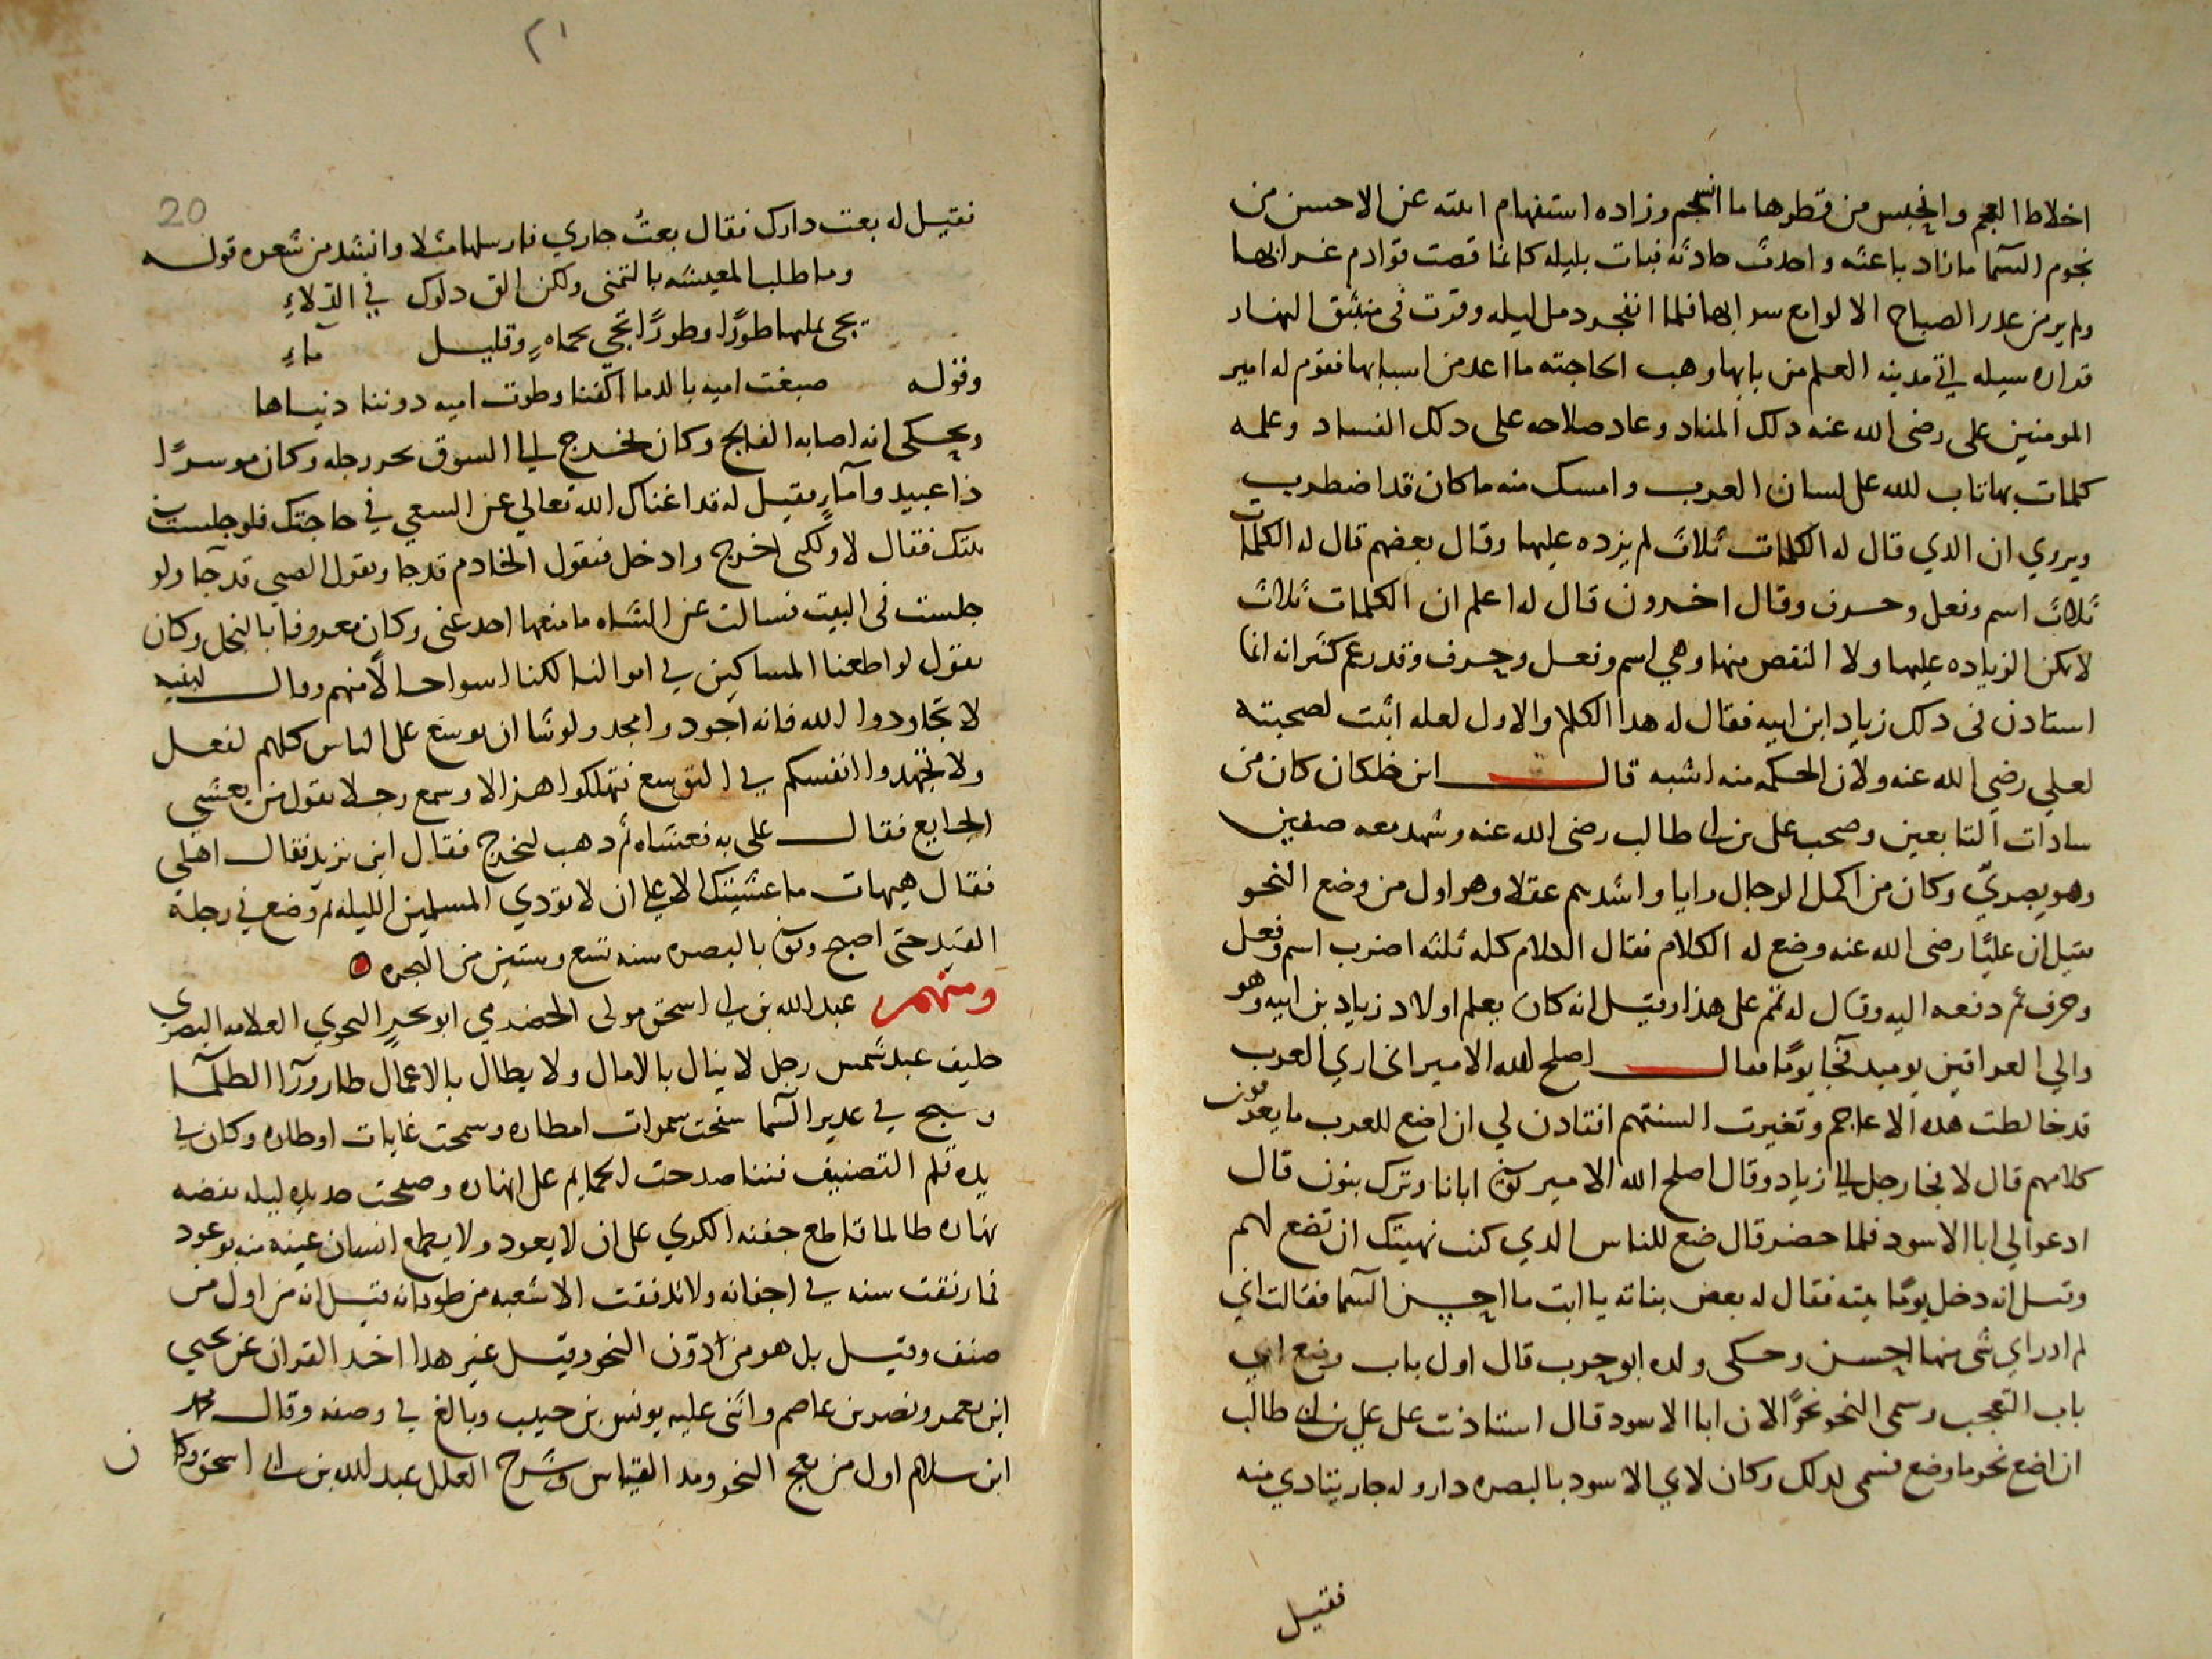 اخلاط العجم وانحبس من قطرها ما انسجم وزاده استفهام ابنته عن الاحسن من
نجوم السما مازاد باعثه واحدث حادثه فبات بليله كانما قصت قوادم غرابها
ولم ير من غدر الصباح الا لوامع سرابها فلما انفجر دمل ليله وقرت في منبثق النهار
قراره سيله اتى مدينه العلم من بابها وهب لحاجته ما اعد من اسبابها فقوم له امير
المومنين على رضى الله عنه دلك المناد وعاد صلاحه على دلك الفساد وعلمه
كلمات بها تاب الله على لسان العرب وامسك منه ما كان قد اضطرب
ويروي ان الدي قال له الكلمات ثلاث لم يزده عليها وقال بعضهم قال له الكلمات
ثلاث اسم وفعل وحرف وقال اخرون قال له اعلم ان الكلمات ثلاث
لا يمكن الزياده عليها ولا النقص منها وهي اسم وفعل وحرف وقد زعم كثير انه انما
استادن فى دلك زياد ابن ابيه فقال له هدا الكلام والاول لعله اثبت لصحبته
لعلي رضي الله عنه ولان الحكمه منه اشبه قال ابن خلكان كان من
سادات التابعين وصحب على بن ابى طالب رضى الله عنه وشهد معه صفين
وهو بصريّ وكان من اكمل الرجال رايا واشدهم عقلا وهو اول من وضع النحو
فقيل ان عليًا رضى الله عنه وضع له الكلام فقال الكلام كله ثلثه اضرب اسم وفعل
وحرف ثم دفعه اليه وقال له تمم على هذا وقيل انه كان يعلم اولاد زياد بن ابيه وهو
والي العراقين يوميد فجا يومًا فقال اصلح الله الامير انى اري العرب
قد خالطت هده الاعاجم وتغيرت السنتهم افتادن لي ان اضع للعرب ما يعرفون
كلامهم قال لا فجا رجل الى زياد وقال اصلح الله الامير توفى ابانا وترك بنون قال
ادعوا لي ابا الاسود فلما حضر قال ضع للناس الدي كنت نهيتك ان تضع لهم
وقيل انه دخل يومًا بيته فقال له بعض بناته يا ابت ما احسن السما فقالت اي
لم ادر اي شى منها احسن وحكى ولده ابو حرب قال اول باب وضع ابي
باب التعجب وسمى النحو نحوًا لان ابا الاسود قال استاذنت على علي بن ابى طالب
ان اضع نحو ما وضع فسمى لدلك وكان لابي الاسود بالبصره دار وله جار يتادي منه
فقيل
٢١
20
فقيل له بعت دارك فقال بعتُ جاري فارسلها مثلا وانشد من شعره قوله
وما طلب المعيشه بالتمنى ولكن الق دلوك في الدّلاءِ
تجى بملئها طورًا وطورًا تجي بحماهٍ وقليل ماءِ
وقوله صبغت اميه بالدما اكفنا وطوت اميه دوننا دنياها
ويحكى انه اصابه الفالج وكان يخرج الى السوق يجر رجله وكان موسرًا
ذا عبيد وآماءٍ فقيل له قد اغناك الله تعالى عن السعي في حاجتك فلو جلست فى
بيتك فقال لا ولكنى اخرج وادخل فتقول الخادم قد جا ويقول الصبي قد جآ ولو
جلست فى البيت فبالت عن الشاه ما منعها احد عنى وكان معروفا بالبخل وكان
يقول لو اطعنا المساكين في اموالنا لكنا اسوا حالاً منهم وقال لبنيه
لا تجاودوا الله فانه اجود وامجد ولو شا ان يوسع على الناس كلهم لفعل
ولا تجهدوا انفسكم في التوسع فتهلكوا هزالا وسمع رجلا يقول من يعشى
الجايع فقال على به فعشاه ثم دهب ليخرج فقال اين تريد فقال اهلى
فقال هيهات ما عشيتك الا على ان لا تودي المسلمين الليله ثم وضع في رجله
القيد حتى اصبح وتوفى بالبصره سنه تسع وستين من الهجره
ومنهم عبد الله بن ابى اسحق مولى الحضرمي ابو بحرٍ النحوي العلامه البصري
حليف عبد شمس رجل لا ينال بالامال ولا يطال بالاعمال طار ورآ الظلمآ
وسبح في غدير السما سفحت سموات امطاره وسمحت غايات اوطاره وكان في
يده قلم التصنيف فننا صدحت الحمايم على انهاره وصفحت صديه ليله بفضه
نهاره طالما قاطع جفنه الكري على ان لا يعود ولا يطمع انسان عينه منه بوعود
فما رنقت سنه في اجفانه ولا تدفقت الا شعبه من طوفانه قيل انه من اول من
صنف وقيل بل هو من ادوّن النحو وقيل غير هدا اخد القران عن يحيى
ابن يعمر ونصر بن عاصم واثنى عليه يونس بن حبيب وبالغ في وصفه وقال محمد
ابن سلام اول من بعج النحو ومد القياس وشرح العلل عبد الله بن ابى اسحق وكان